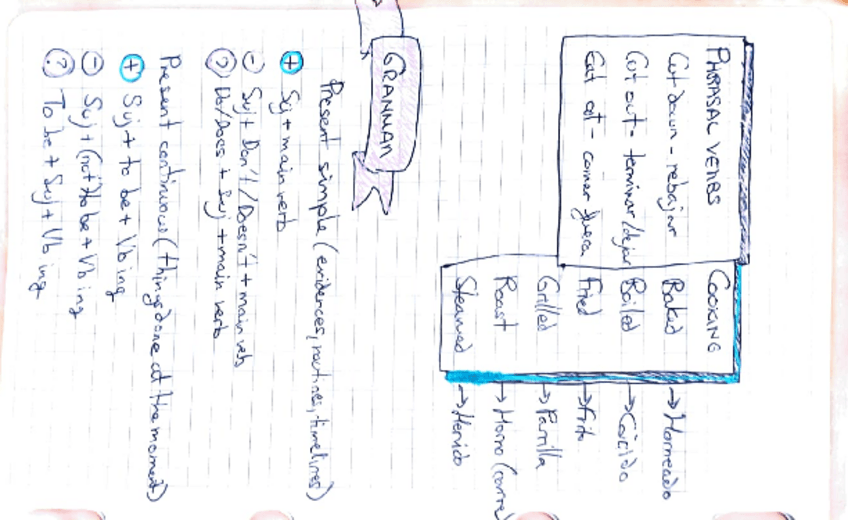 PHRASAL VERBS
Cut down - rebajar
Cut out - terminar/dejar
Eat out - comer fuera
COOKING
Baked → Horneado
Boiled → Cocido
Fried → Frito
Grilled → Parrilla
Roast → Horno (carne
Steamed → Hervido
GRAMMAR
Present simple (evidences, routines, timelines)
+ Suj + main verb
- Suj + Don't / Doesn't + main verb
? Do/Does + Suj + main verb
Present continuous (things done at the moment)
+ Suj + to be + Vb ing
- Suj + (not) to be + Vb ing
? To be + Suj + Vb ing